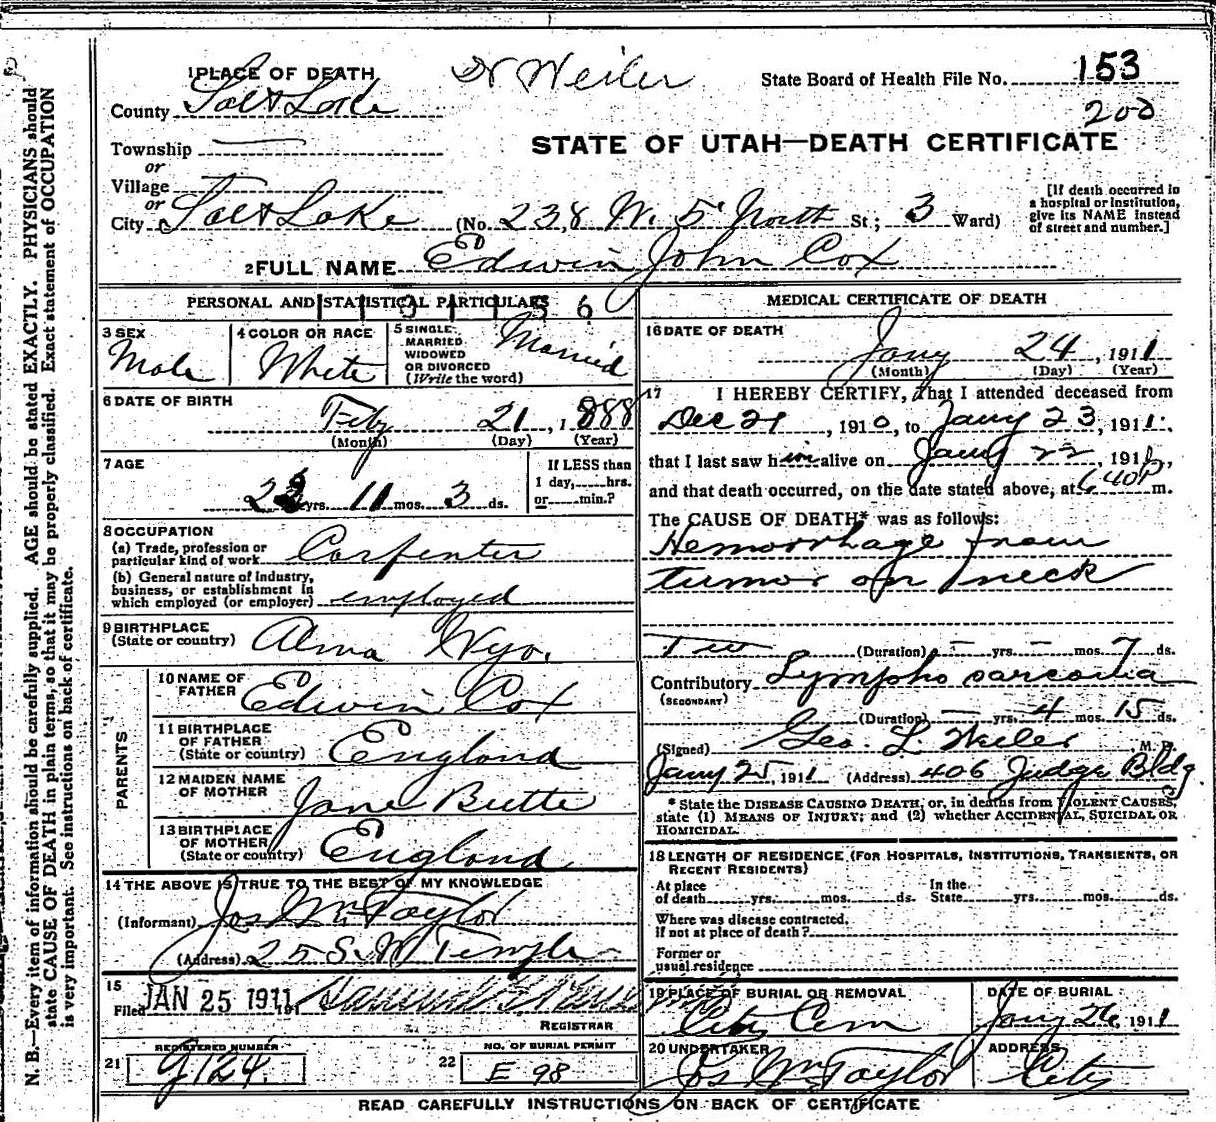 N. B.—Every item of information should be carefully supplied. AGE should be stated EXACTLY. PHYSICIANS should
state CAUSE OF DEATH in plain terms, so that it may be properly classified. Exact statement of OCCUPATION
is very important. See instructions on back of certificate.
Dr Weiler
State Board of Health File No. 153
200
STATE OF UTAH—DEATH CERTIFICATE
1 PLACE OF DEATH
County Salt Lake
Township —
or
Village —
or
City Salt Lake (No. 238 W. 5 North St; 3 Ward)
[If death occurred in
a hospital or institution,
give its NAME instead
of street and number.]
2 FULL NAME Edwin John Cox
PERSONAL AND STATISTICAL PARTICULARS
3 SEX
Male
4 COLOR OR RACE
White
5 SINGLE
MARRIED
WIDOWED
OR DIVORCED
(Write the word)
Married
6 DATE OF BIRTH
Feby 21, 1888
(Month) (Day) (Year)
7 AGE
yrs. 11 mos. 3 ds.
If LESS than
1 day, hrs.
or min.?
8 OCCUPATION
(a) Trade, profession or
particular kind of work Carpenter
(b) General nature of industry,
business, or establishment in
which employed (or employer) employed
9 BIRTHPLACE
(State or country) Alma Wyo.
PARENTS
10 NAME OF
FATHER Edwin Cox
11 BIRTHPLACE
OF FATHER
(State or country) England
12 MAIDEN NAME
OF MOTHER Jane Butte
13 BIRTHPLACE
OF MOTHER
(State or country) England
14 THE ABOVE IS TRUE TO THE BEST OF MY KNOWLEDGE
(Informant) Jos Wm Taylor
(Address) 25 S. W Temple
15
Filed JAN 25 1911 191
REGISTRAR
21 REGISTERED NUMBER
9124.
22 NO. OF BURIAL PERMIT
E 98
MEDICAL CERTIFICATE OF DEATH
16 DATE OF DEATH
Jany 24, 1911
(Month) (Day) (Year)
17 I HEREBY CERTIFY, That I attended deceased from
Dec 21, 1910, to Jany 23, 1911,
that I last saw him alive on Jany 22, 191
and that death occurred, on the date stated above, at 640P m.
The CAUSE OF DEATH* was as follows:
Hemorrhage from
tumor on neck
(Duration) — yrs. — mos. 7 ds.
Contributory Lympho sarcoma
(SECONDARY)
(Duration) — yrs. 4 mos. 15 ds.
(Signed) Geo. L Weiler M. D.
Jany 25, 1911 (Address) 406 Judge Bldg
* State the DISEASE CAUSING DEATH, or, in deaths from VIOLENT CAUSES,
state (1) MEANS OF INJURY; and (2) whether ACCIDENTAL, SUICIDAL OR
HOMICIDAL.
18 LENGTH OF RESIDENCE (FOR HOSPITALS, INSTITUTIONS, TRANSIENTS, OR
RECENT RESIDENTS)
At place
of death yrs. mos. ds.
In the
State yrs. mos. ds.
Where was disease contracted,
if not at place of death?
Former or
usual residence
19 PLACE OF BURIAL OR REMOVAL
City Cem
DATE OF BURIAL
Jany 26, 1911
20 UNDERTAKER
Jos Wm Taylor
ADDRESS
City
READ CAREFULLY INSTRUCTIONS ON BACK OF CERTIFICATE